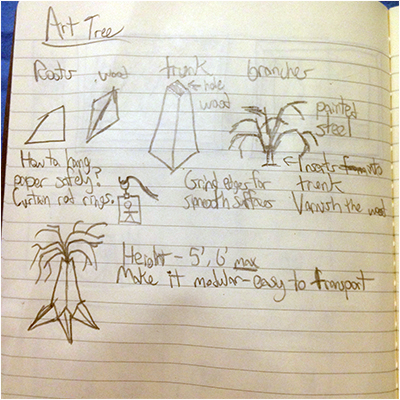 Art Tree
Roots wood trunk branches
hole
wood
painted
steel
How to hang
paper safely?
Curtain rod rings.
Grind edges for
smooth surfaces
Inserts into
trunk
Varnish the wood
Height - 5', 6' max
Make it modular - easy to transport